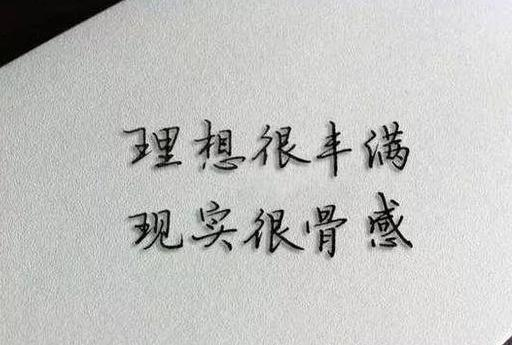 理想很丰满
现实很骨感